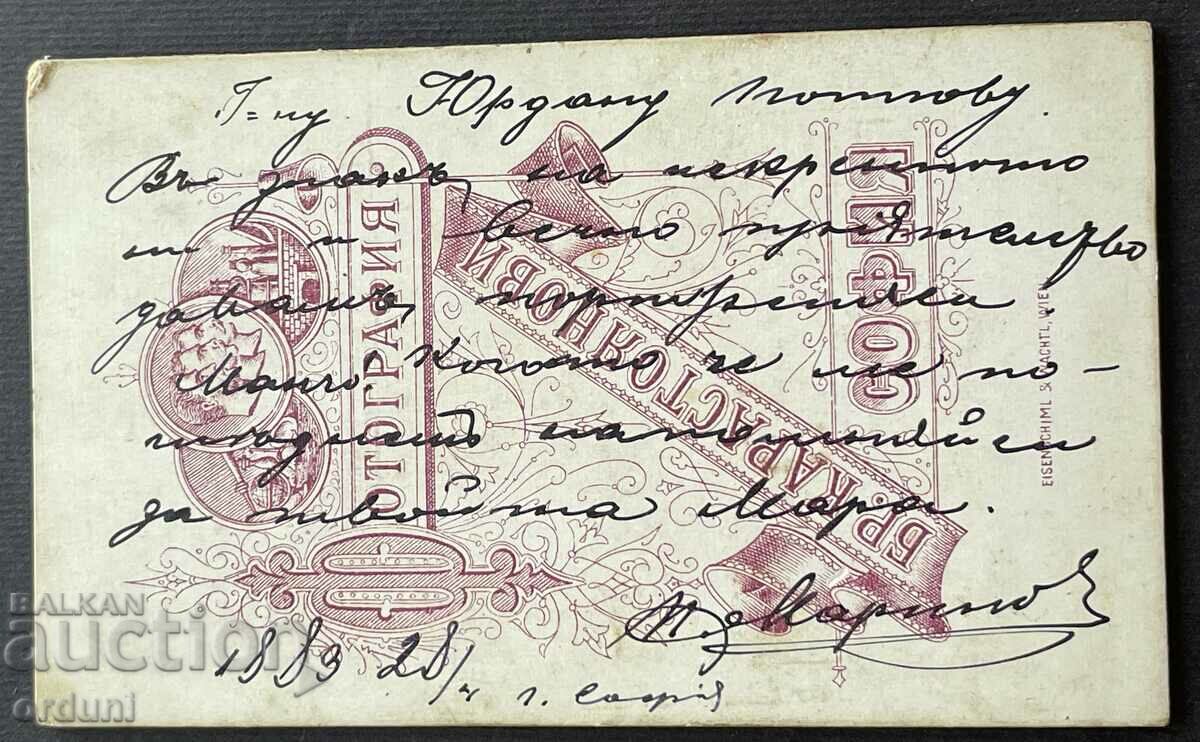 Г=ну Юрдану Поппову.
Въ знакъ на искренното
ни и вечно приятелство
давамъ портретяси!
Манчо! Когато че ме по-
гледнешъ напомняйси
за твойта Мара.
Н. Маринов
1883 28/4 г. София
ФОТОГРАФИЯ
БР. КАРАСТОЯНОВИ
СОФИЯ
EISENSCHIML & WACHTL, WIEN
BALKAN
auction
orduni